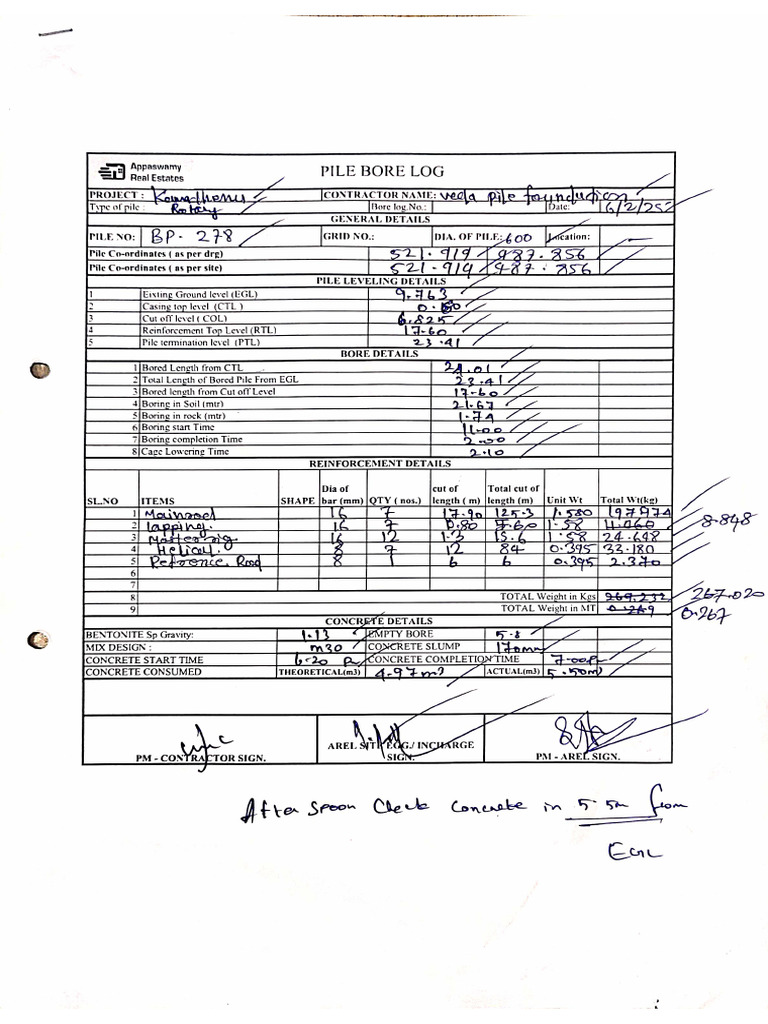 Appaswamy
Real Estates
PILE BORE LOG
PROJECT : CONTRACTOR NAME: veda pile foundation
Type of pile : Rotary Bore log.No.: Date: 6/2/25
GENERAL DETAILS
PILE NO: BP- 278 GRID NO.: DIA. OF PILE: 600 Location:
Pile Co-ordinates ( as per drg) 521.919 987.856
Pile Co-ordinates ( as per site) 521.919 987.856
PILE LEVELING DETAILS
1 Eixting Ground level (EGL) 9.763
2 Casing top level (CTL )
3 Cut off level ( COL) 6.825
4 Reinforcement Top Level (RTL) 17.60
5 Pile termination level (PTL) 23.41
BORE DETAILS
1 Bored Length from CTL 24.01
2 Total Length of Bored Pile From EGL 23.41
3 Bored length from Cut off Level 17.60
4 Boring in Soil (mtr) 21.67
5 Boring in rock (mtr) 1.74
6 Boring start Time 11.00
7 Boring completion Time 2.00
8 Cage Lowering Time 2.10
REINFORCEMENT DETAILS
SL.NO ITEMS SHAPE Dia of bar (mm) QTY ( nos.) cut of length ( m) Total cut of length (m) Unit Wt Total Wt(kg)
1 Mainrod 16 7 17.90 125.3 1.580 197.974
2 Lapping. 16 7 0.80 1.58 8.848
3 16 12 1.3 15.6 1.58 24.648
4 Helical 8 7 12 84 0.395 33.180
5 8 1 6 6 0.395 2.370
6
7
8 TOTAL Weight in Kgs 269.232 267.020
9 TOTAL Weight in MT 0.269 0.267
CONCRETE DETAILS
BENTONITE Sp Gravity: 1.13 EMPTY BORE 5.8
MIX DESIGN : m30 CONCRETE SLUMP 170mm
CONCRETE START TIME 6.20 P CONCRETE COMPLETION TIME 7.00P
CONCRETE CONSUMED THEORETICAL(m3) 4.97m3 ACTUAL(m3) 5.50m3
PM - CONTRACTOR SIGN. AREL SITE EGG./ INCHARGE SIGN. PM - AREL SIGN.
After Spoon Check Concrete in 5.5m from
EGL